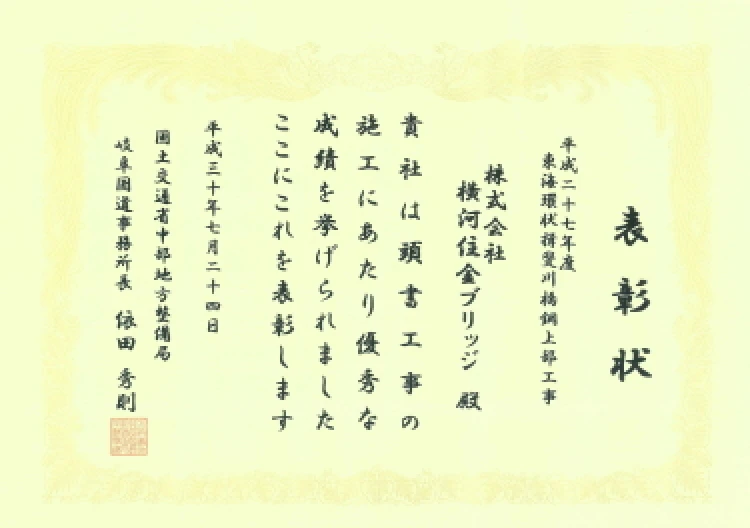 表彰状
平成二十七年度
東海環状揖斐川橋鋼上部工事
株式会社
横河住金ブリッジ 殿
貴社は頭書工事の
施工にあたり優秀な
成績を挙げられました
ここにこれを表彰します
平成三十年七月二十四日
国土交通省中部地方整備局
岐阜国道事務所長 依田 秀則